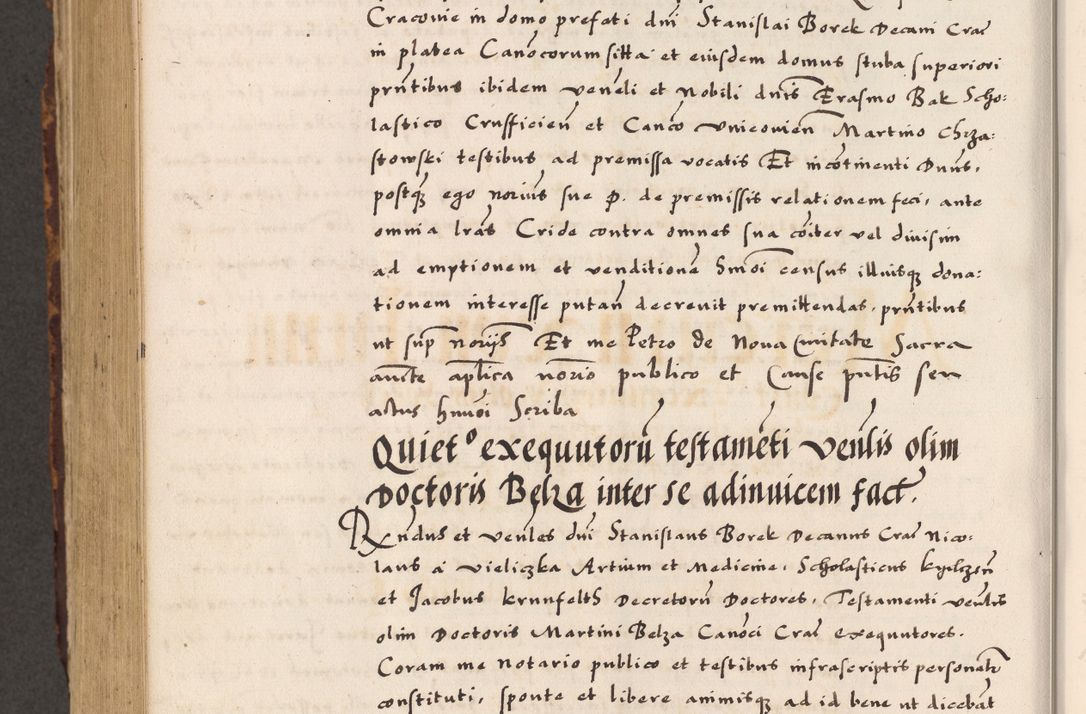 Cracovie in domo prefati dni Stanislai Borek Decani Cra
in platea Canocorum sitta et eiusdem domus stuba superiori
pntibus ibidem veneli et Nobili dnis Erasmo Bak Scho:
lastico Crufficien et Canco Unieovien Martino Chrza:
stowski testibus ad premissa vocatis Et incotinenti Duns,
postq ego norius sue P. de premissis relationem feci, ante
omnia lras Cride contra omnes sua coiter vel divisim
ad emptionem et venditione Smoi census illiusq dona:
tionem interesse putan decrevit premittendas, pntibus
ut sup norijs Et me Petro de Nova Civitate Sacra
aucte aplica norio publico et Cause pntis seu
actus hmoi Scriba
Quiet° exequutoru testameti Venlis olim
Doctoris Belza inter se adinuicem fact.
Rndus et venles dni Stanislaus Borek Decanus Cra Nico:
laus a Vieliczka Artium et Medicine, Scholasticus Kyelczen
et Jacobus Krunfelth Decretoru Doctores, Testamenti venlis
olim Doctoris Martini Belza Canoci Cra exequutores.
Coram me Notario publico et testibus infrascriptis personalr
constituti, sponte et libere animisq ad id bene ut dicebat